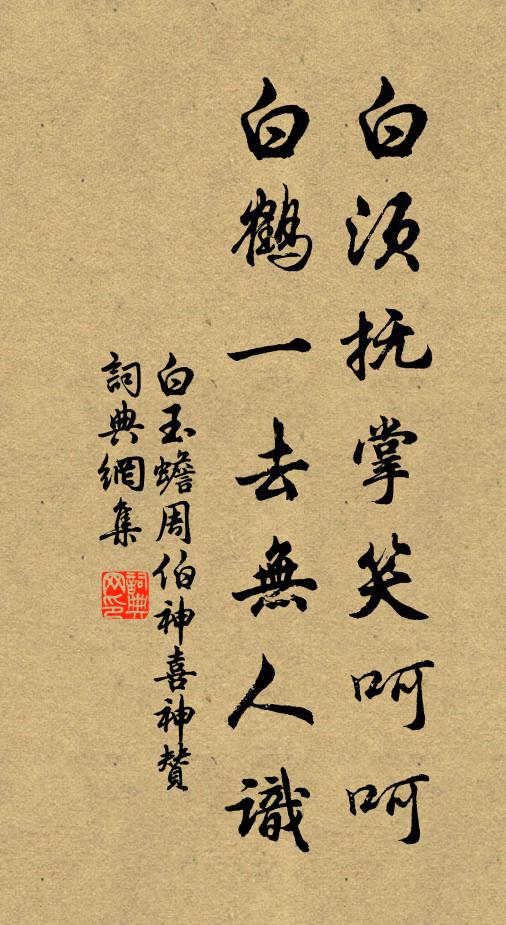 白须抚掌笑呵呵
白鶴一去無人識
白玉蟾周伯神喜神贊
詞典網集
詞典网印